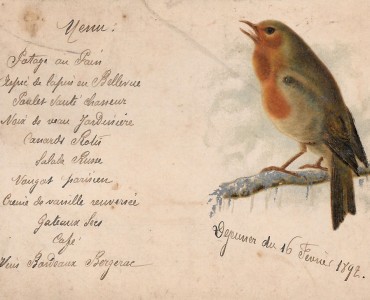 Menu :
Potage au Pain
de lapin en Bellevue
Poulet Sauté chasseur
Noix de veau Jardinière
Canards Rotis
Salade Russe
Nougat parisien
Crème de vanille renversée
Gateaux Secs
Café
Vins Bordeaux Bergerac
Déjeuner du 16 Février 1892.